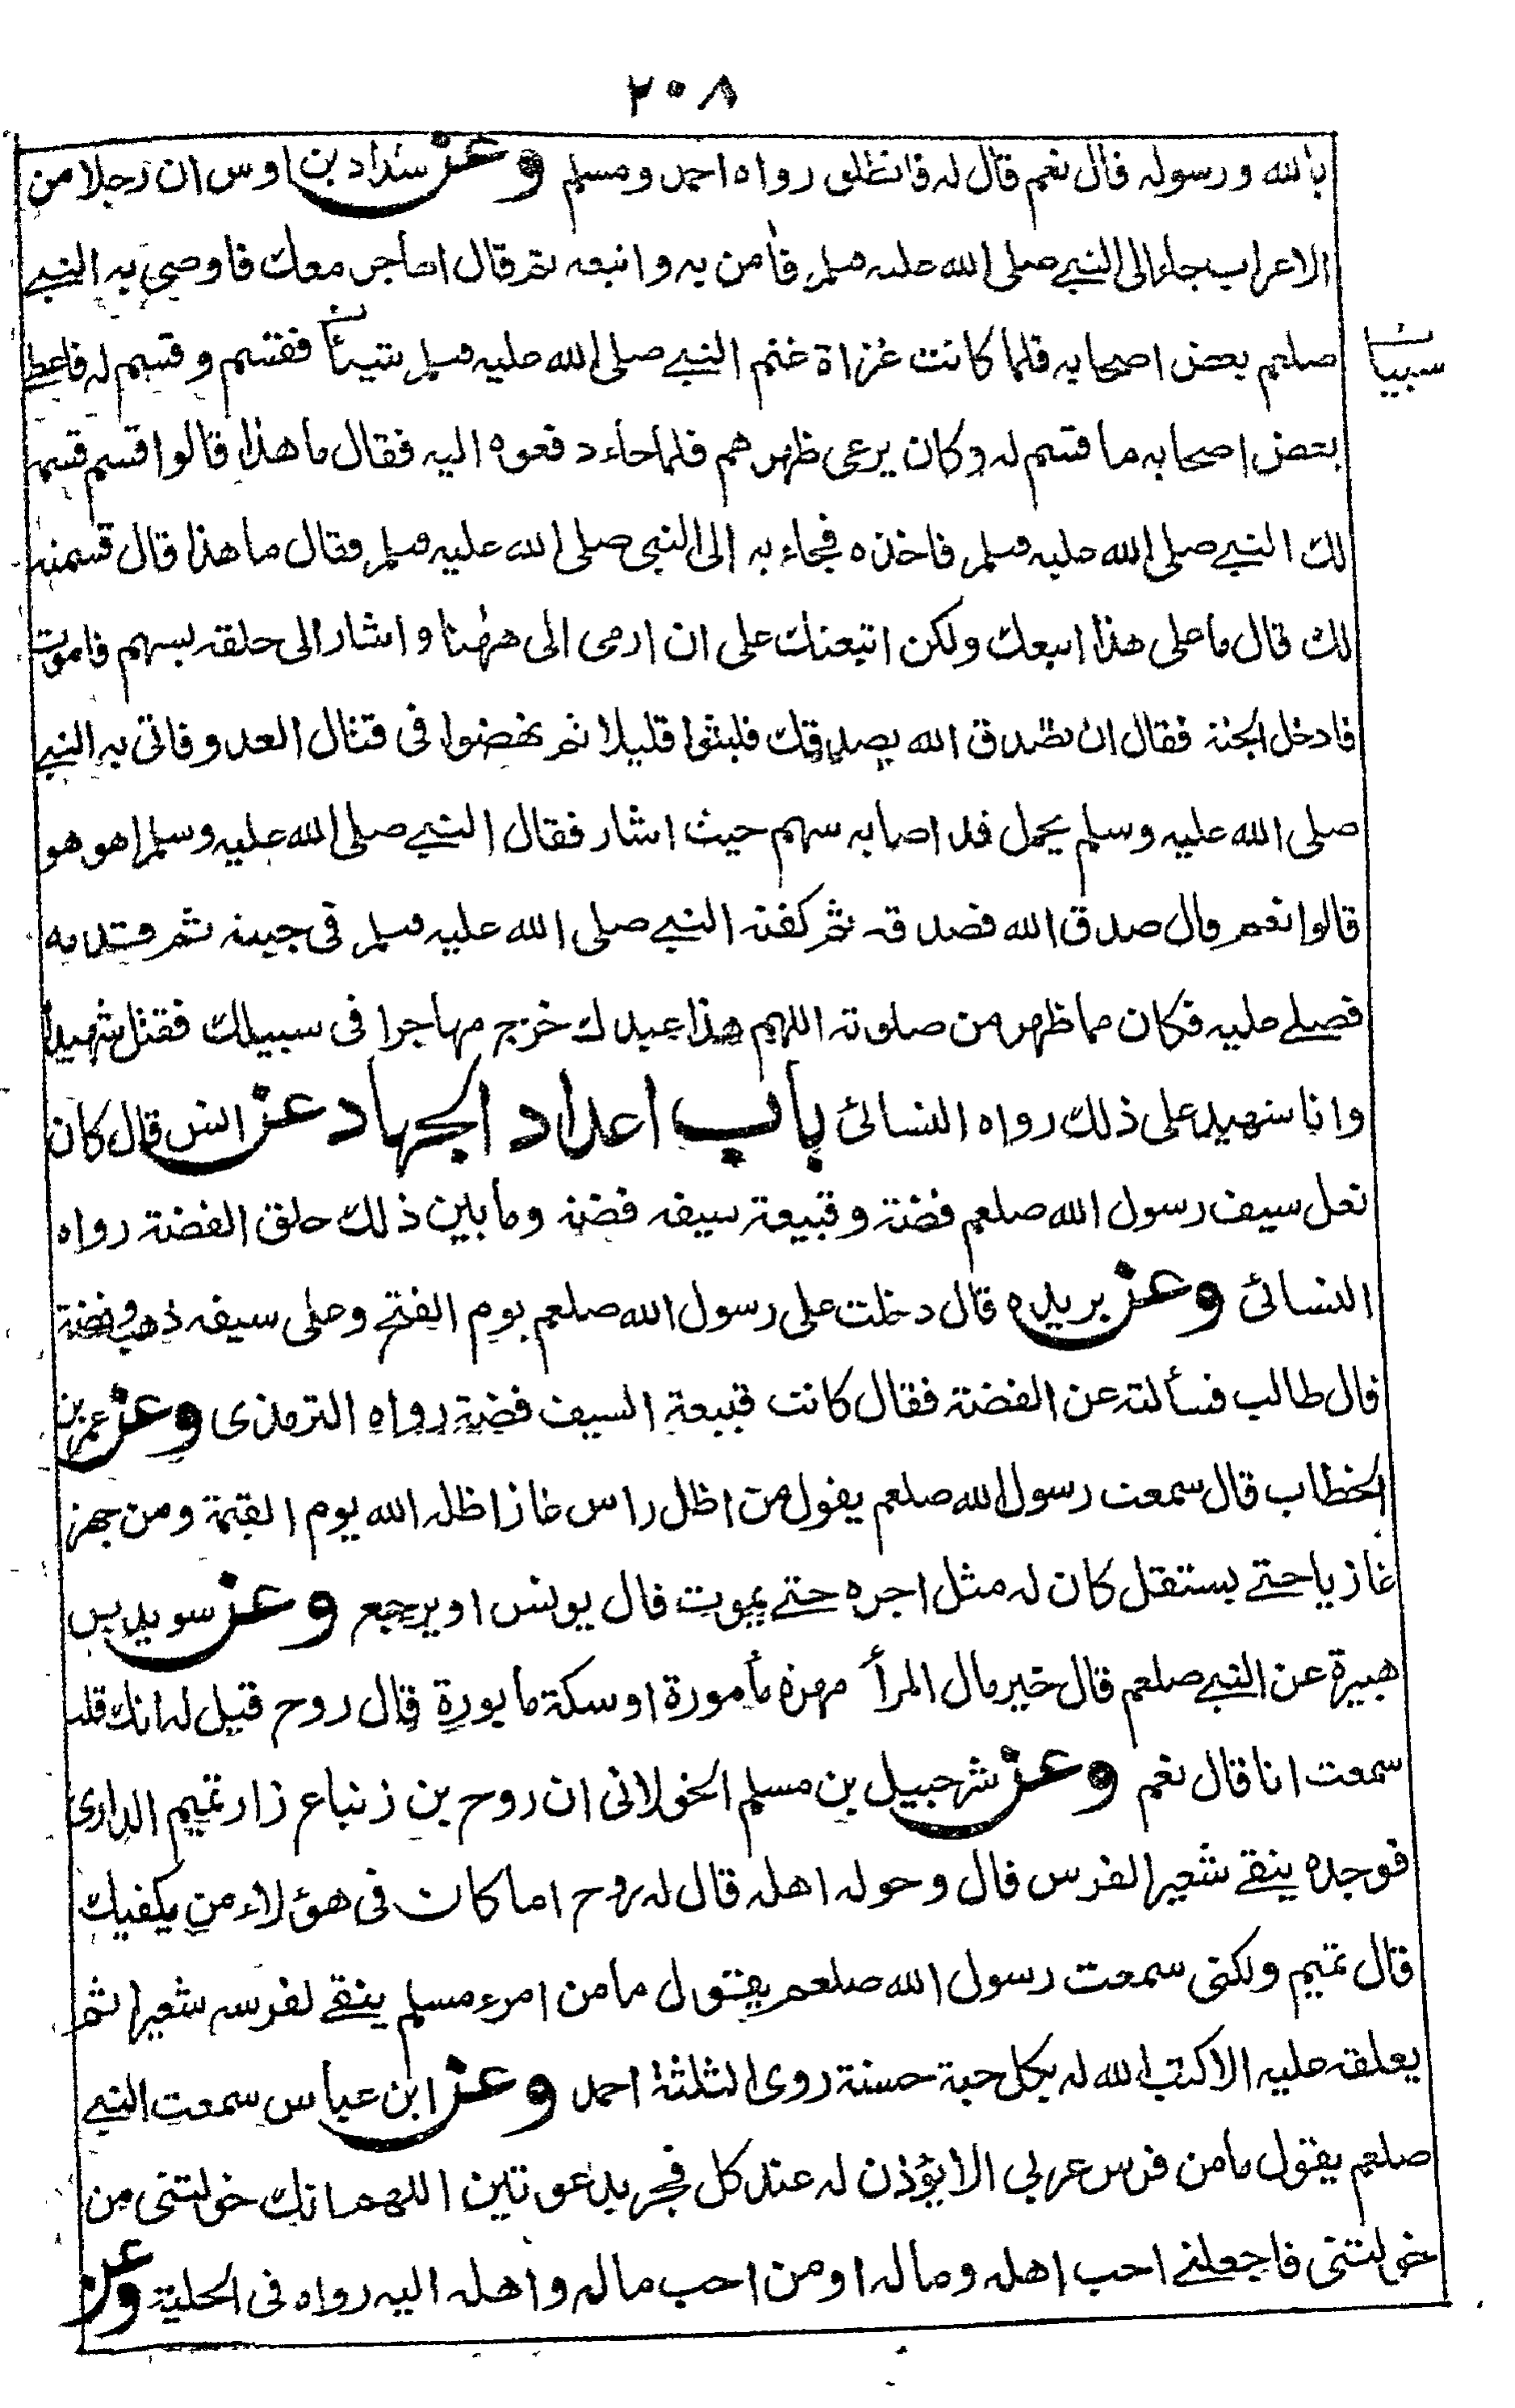 ٢٠٨
بالله ورسوله قال نعم قال له فانطلق رواه احمد ومسلم وعن شداد بن اوس ان رجلا من
الاعراب جاء الى النبي صلى الله عليه وسلم فامن به واتبعه ثم قال اهاجر معك فاوصى به النبي
صلعم بعض اصحابه فلما كانت غزاة غنم النبي صلى الله عليه وسلم شيئا فقسم وقسم له فاعطى
سبيا
بعض اصحابه ما قسم له وكان يرعى ظهرهم فلما جاء دفعوه اليه فقال ما هذا قالوا قسم قسمه
لك النبي صلى الله عليه وسلم فاخذه فجاء به الى النبي صلى الله عليه وسلم فقال ما هذا قال قسمته
لك قال ما على هذا اتبعك ولكن اتبعتك على ان ارمى الى ههنا واشار الى حلقه بسهم فاموت
فادخل الجنة فقال ان تصدق الله يصدقك فلبثوا قليلا ثم نهضوا فى قتال العدو فاتى به النبي
صلى الله عليه وسلم يحمل قد اصابه سهم حيث اشار فقال النبي صلى الله عليه وسلم اهو هو
قالوا نعم قال صدق الله فصدقه ثم كفنه النبي صلى الله عليه وسلم فى جبته ثم قدمه
فصلے عليه فكان مما ظهر من صلوته اللهم هذا عبدك خرج مهاجرا فى سبيلك فقتل شهيدا
وانا شهيد على ذلك رواه النسائى باب اعداد الجهاد عن انس قال كان
نعل سيف رسول الله صلعم فضة وقبيعة سيفه فضة وما بين ذلك حلق الفضة رواه
النسائى وعن بريده قال دخلت على رسول الله صلعم يوم الفتح وعلى سيفه ذهب وفضة
قال طالب فسألته عن الفضة فقال كانت قبيعة السيف فضة رواه الترمذى وعن عمر بن
الخطاب قال سمعت رسول الله صلعم يقول من اظل راس غاز اظله الله يوم القيمة ومن جهز
غازيا حتے يستقل كان له مثل اجره حتے يموت قال يونس او يرجع وعن سويد بن
هبيرة عن النبي صلعم قال خير مال المرأ مهرة مأمورة او سكة مأبورة قال روح قيل له انك قلت
سمعت انا قال نعم وعن شرحبيل بن مسلم الخولانى ان روح بن زنباع زار تميم الدارى
فوجده ينقے شعير الفرس قال وحوله اهله قال له روح اما كان فى هؤلاء من يكفيك
قال تميم ولكنى سمعت رسول الله صلعم يقول ما من امرء مسلم ينقے لفرسه شعيرا ثم
يعلقه عليه الا كتب الله له بكل حبة حسنة روى الثلثة احمد وعن ابن عباس سمعت النبي
صلعم يقول ما من فرس عربي الا يؤذن له عند كل فجر بدعوتين اللهم انك خولتنى من
خولتنى فاجعلنے احب اهله وماله او من احب ماله واهله اليه رواه فى الحلية وعن